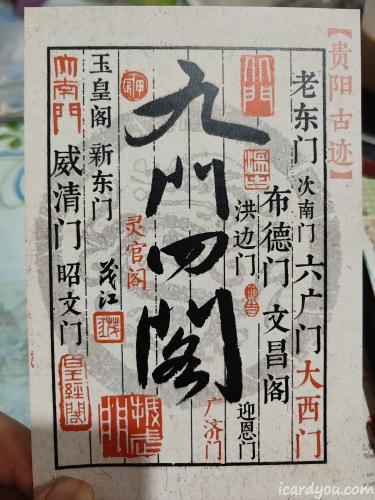 【贵阳古迹】
老东门 次南门 六广门 大西门
布德门 文昌阁
洪边门
迎恩门
广济门
九門四閣
灵官阁
玉皇阁 新东门 茂江
大南門
威清门 昭文门
皇經閣
icardyou.com